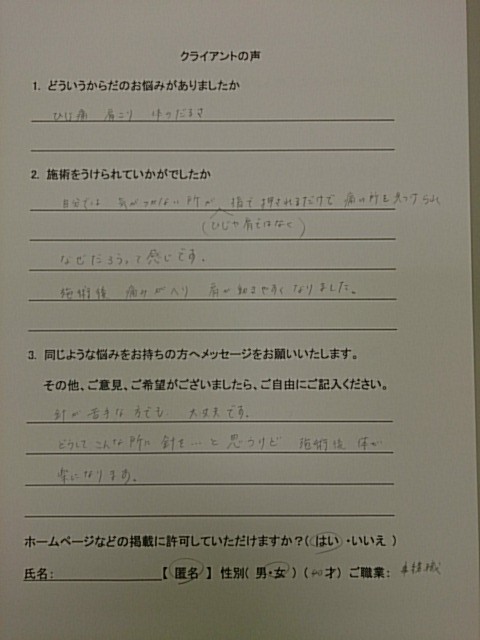 クライアントの声
1. どういうからだのお悩みがありましたか
ひじ痛 肩こり 体のだるさ
2. 施術をうけられていかがでしたか
自分では 気がつかない所が 指で押されるだけで 痛い所を見つけられ
(ひじや肩ではなく)
なぜだろうって感じです。
施術後 痛みがへり 肩が動きやすくなりました。
3. 同じような悩みをお持ちの方へメッセージをお願いいたします。
その他、ご意見、ご希望がございましたら、ご自由にご記入ください。
針が苦手な方でも 大丈夫です。
どうしてこんな所に 針を…と思うけど 施術後 体が
楽になります。
ホームページなどの掲載に許可していただけますか?( はい ・いいえ )
氏名: 【 匿名 】 性別( 男・女 ) ( 40才) ご職業: 事務職